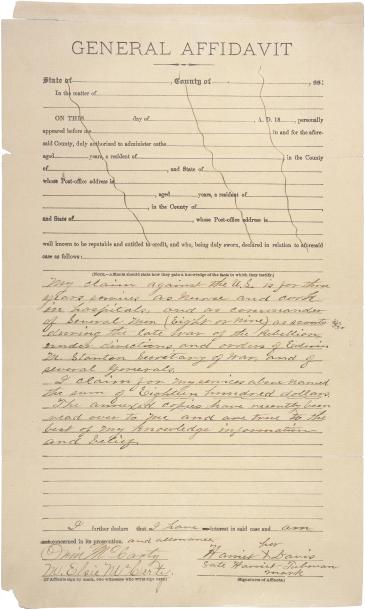 GENERAL AFFIDAVIT
State of , County of , ss:
In the matter of
ON THIS day of , A. D. 18 , personally
appeared before me in and for the afore-
said County, duly authorized to administer oaths
aged years, a resident of , in the County
of , and State of ,
whose Post-office address is
, aged years, a resident of
, in the County of
and State of , whose Post-office address is
well known to be reputable and entitled to credit, and who, being duly sworn, declared in relation to aforesaid
case as follows:
(NOTE.—Affiants should state how they gain a knowledge of the facts to which they testify.)
My claim against the U.S. is for three
years service as nurse and cook
in hospitals, and as commander
of several men (Eight or nine) as scouts
during the late War of the Rebellion,
under directions and orders of Edwin
M. Stanton Secretary of War, and of
several Generals.
I claim for my services above named
the sum of Eighteen hundred dollars.
The annexed copies have recently been
read over to me and are true to the
best of my knowledge information
and belief.
I further declare that I have interest in said case and am
concerned in its prosecution, and allowance.
her
Harriet X Davis
late Harriet Tubman
mark
(If Affiants sign by mark, two witnesses who write sign here.)
(Signatures of Affiants.)